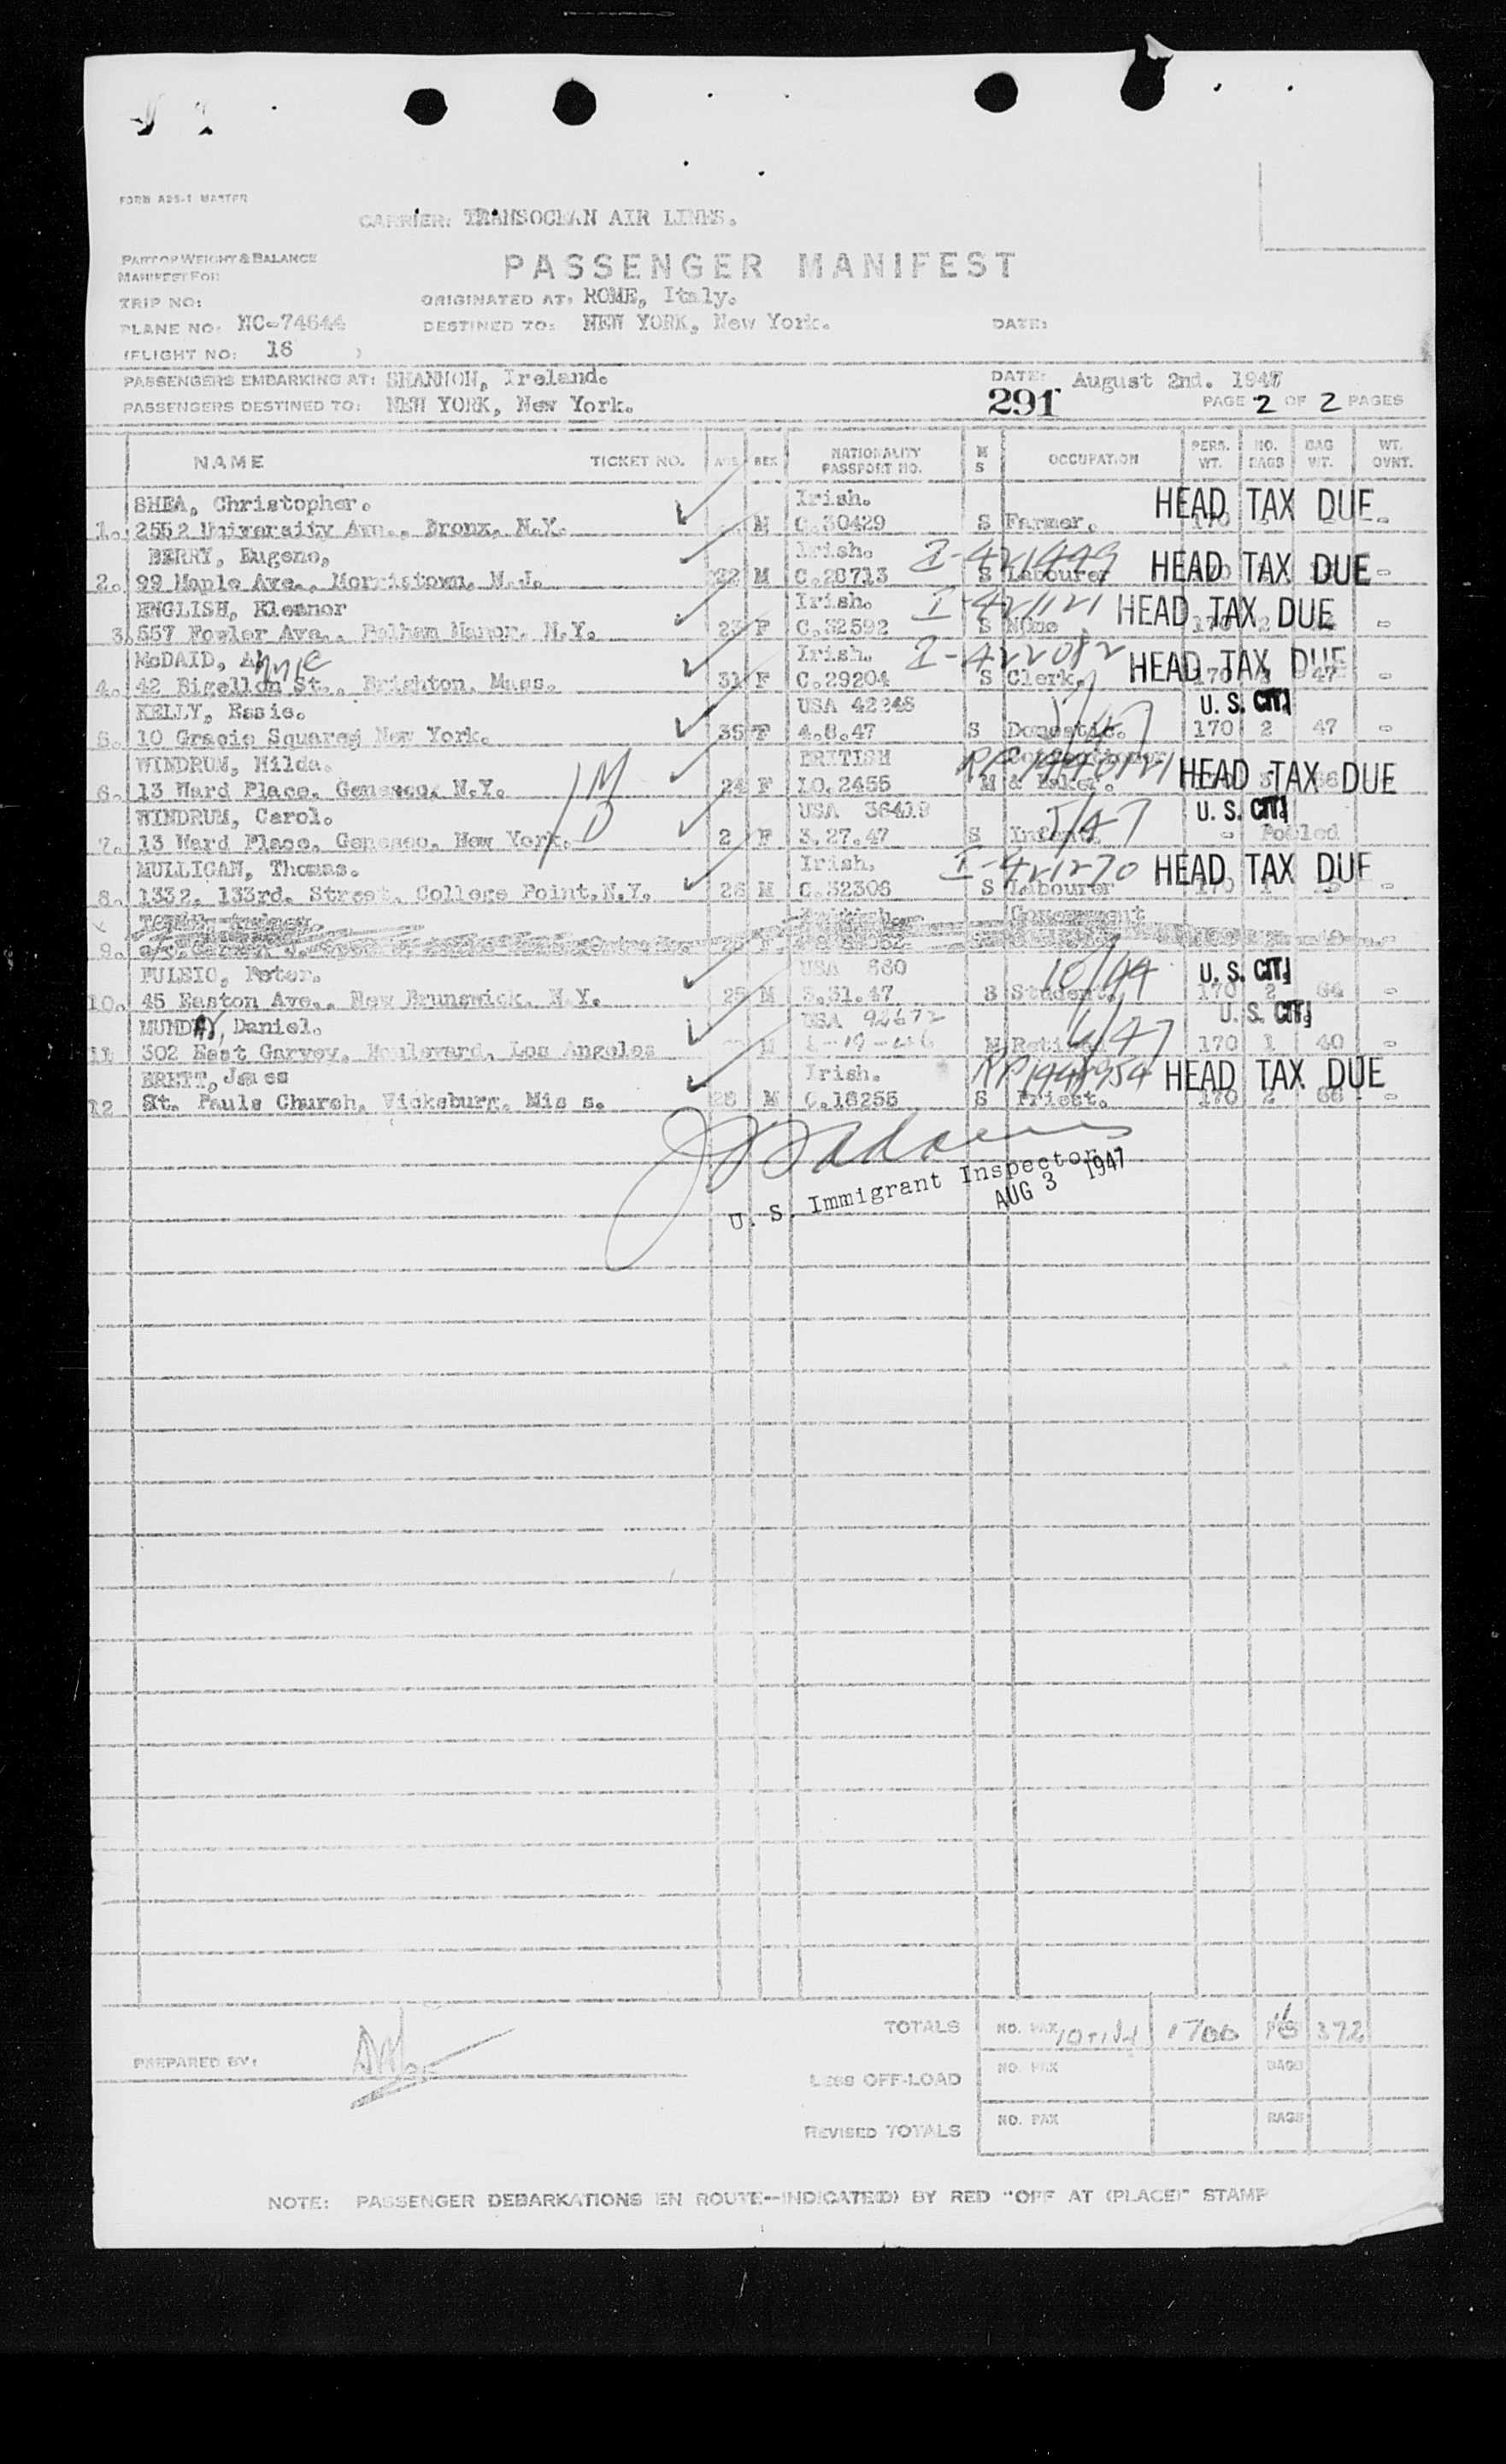 FORM ADS-1 MASTER
CARRIER: TRANSOCEAN AIR LINES.
PART OF WEIGHT & BALANCE
MANIFEST FOR:
PASSENGER MANIFEST
TRIP NO:
ORIGINATED AT: ROME, Italy.
PLANE NO: NC-74644
DESTINED TO: NEW YORK, New York.
DATE:
(FLIGHT NO: 16 )
PASSENGERS EMBARKING AT: SHANNON, Ireland.
DATE: August 2nd. 1947
PASSENGERS DESTINED TO: NEW YORK, New York.
291
PAGE 2 OF 2 PAGES
NAME TICKET NO. AGE SEX NATIONALITY PASSPORT NO. M S OCCUPATION PERS. WT. NO. BAGS BAG WT. WT. OVNT.
SHEA, Christopher. Irish. HEAD TAX DUE
1. 2552 University Ave., Bronx, N.Y. M C.30429 S Farmer. 170
BERRY, Eugene, Irish. I-421449
2. 99 Maple Ave., Morristown, N.J. 22 M C.28713 S Labourer HEAD TAX DUE -
ENGLISH, Eleanor Irish. I-421121 HEAD TAX DUE
3. 557 Fowler Ave., Pelham Manor, N.Y. 23 F C.32592 S None 170 2 -
McDAID, Annie Irish. I-422082 HEAD TAX DUE
4. 42 Bigellon St., Brighton, Mass. 31 F C.29204 S Clerk. 170 47 -
KELLY, Essie. USA 42246 U. S. CIT.
5. 10 Gracie Square, New York. 35 F 4.8.47 S Domestic. 170 2 47 -
WINDRUM, Hilda. BRITISH
6. 13 Ward Place, Geneseo, N.Y. 1M 24 F LO.2455 M & Baker. HEAD TAX DUE
WINDRUM, Carol. USA 36419 U. S. CIT.
7. 13 Ward Place, Geneseo, New York. 1D 2 F 3.27.47 S Infant. 5/47 - Pooled
MULLIGAN, Thomas. Irish. I-421270 HEAD TAX DUE
8. 1332, 133rd. Street, College Point, N.Y. 26 M C.32306 S Labourer 170 1 -
9.
FULEIO, Peter. USA 660 10/44 U. S. CIT.
10. 45 Easton Ave., New Brunswick, N.Y. 25 M 3.31.47 S Student. 170 2 64 -
MUNDAY, Daniel. USA U. S. CIT.
11 302 East Garvey, Boulevard, Los Angeles M M Retired 6/47 170 1 40 -
BRETT, James Irish. HEAD TAX DUE
12 St. Pauls Church, Vicksburg, Mis s. 28 M C.16255 S Priest. 170 2 66 -
U. S. Immigrant Inspector
AUG 3 1947
TOTALS NO. PAX 1700 372
PREPARED BY:
LESS OFF-LOAD NO. PAX BAGS
REVISED TOTALS NO. PAX BAGS
NOTE: PASSENGER DEBARKATIONS EN ROUTE--INDICATE(D) BY RED "OFF AT (PLACE)" STAMP